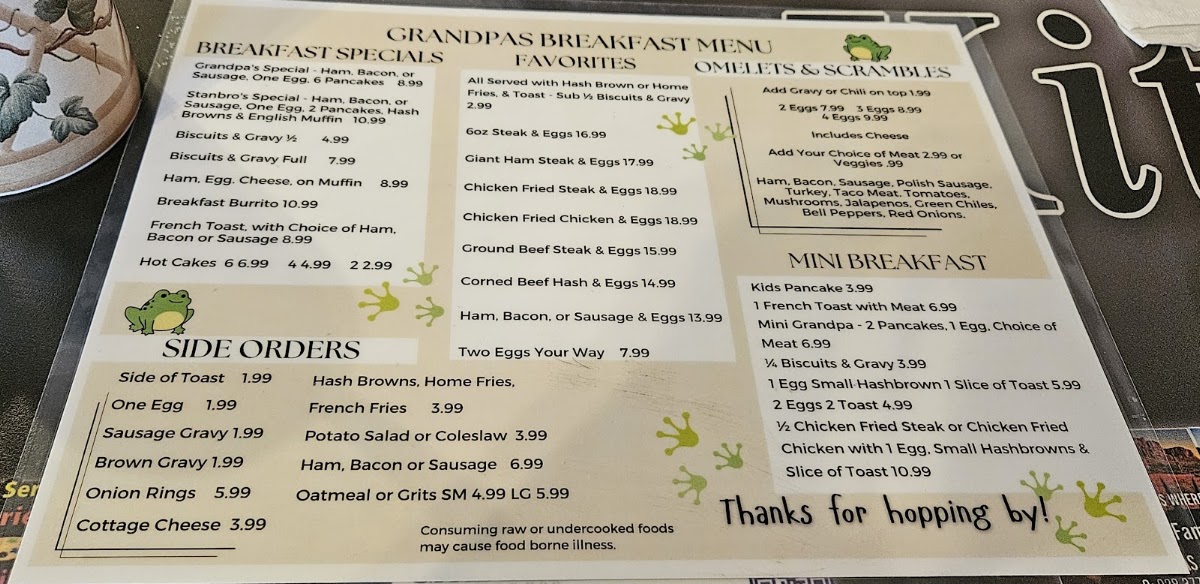 GRANDPAS BREAKFAST MENU
BREAKFAST SPECIALS
Grandpa's Special - Ham, Bacon, or
Sausage, One Egg, 6 Pancakes 8.99
Stanbro's Special - Ham, Bacon, or
Sausage, One Egg, 2 Pancakes, Hash
Browns & English Muffin 10.99
Biscuits & Gravy ½ 4.99
Biscuits & Gravy Full 7.99
Ham, Egg, Cheese, on Muffin 8.99
Breakfast Burrito 10.99
French Toast, with Choice of Ham,
Bacon or Sausage 8.99
Hot Cakes 6 6.99 4 4.99 2 2.99
FAVORITES
All Served with Hash Brown or Home
Fries, & Toast - Sub ½ Biscuits & Gravy
2.99
6oz Steak & Eggs 16.99
Giant Ham Steak & Eggs 17.99
Chicken Fried Steak & Eggs 18.99
Chicken Fried Chicken & Eggs 18.99
Ground Beef Steak & Eggs 15.99
Corned Beef Hash & Eggs 14.99
Ham, Bacon, or Sausage & Eggs 13.99
Two Eggs Your Way 7.99
OMELETS & SCRAMBLES
Add Gravy or Chili on top 1.99
2 Eggs 7.99 3 Eggs 8.99
4 Eggs 9.99
Includes Cheese
Add Your Choice of Meat 2.99 or
Veggies .99
Ham, Bacon, Sausage, Polish Sausage,
Turkey, Taco Meat, Tomatoes,
Mushrooms, Jalapenos, Green Chiles,
Bell Peppers, Red Onions.
MINI BREAKFAST
Kids Pancake 3.99
1 French Toast with Meat 6.99
Mini Grandpa - 2 Pancakes, 1 Egg, Choice of
Meat 6.99
¼ Biscuits & Gravy 3.99
1 Egg Small Hashbrown 1 Slice of Toast 5.99
2 Eggs 2 Toast 4.99
½ Chicken Fried Steak or Chicken Fried
Chicken with 1 Egg, Small Hashbrowns &
Slice of Toast 10.99
SIDE ORDERS
Side of Toast 1.99
One Egg 1.99
Sausage Gravy 1.99
Brown Gravy 1.99
Onion Rings 5.99
Cottage Cheese 3.99
Hash Browns, Home Fries,
French Fries 3.99
Potato Salad or Coleslaw 3.99
Ham, Bacon or Sausage 6.99
Oatmeal or Grits SM 4.99 LG 5.99
Consuming raw or undercooked foods
may cause food borne illness.
Thanks for hopping by!